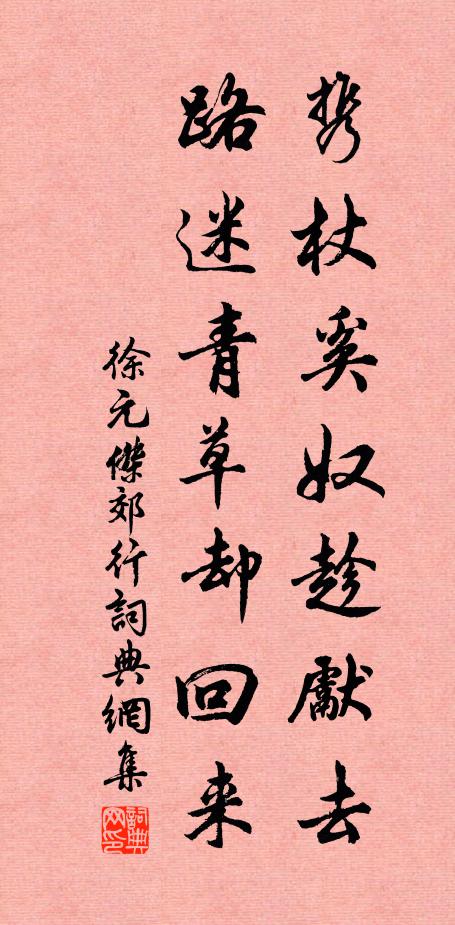 携杖奚奴趁獻去
路迷青草却回来
徐元傑郊行詞典網集
詞典网印